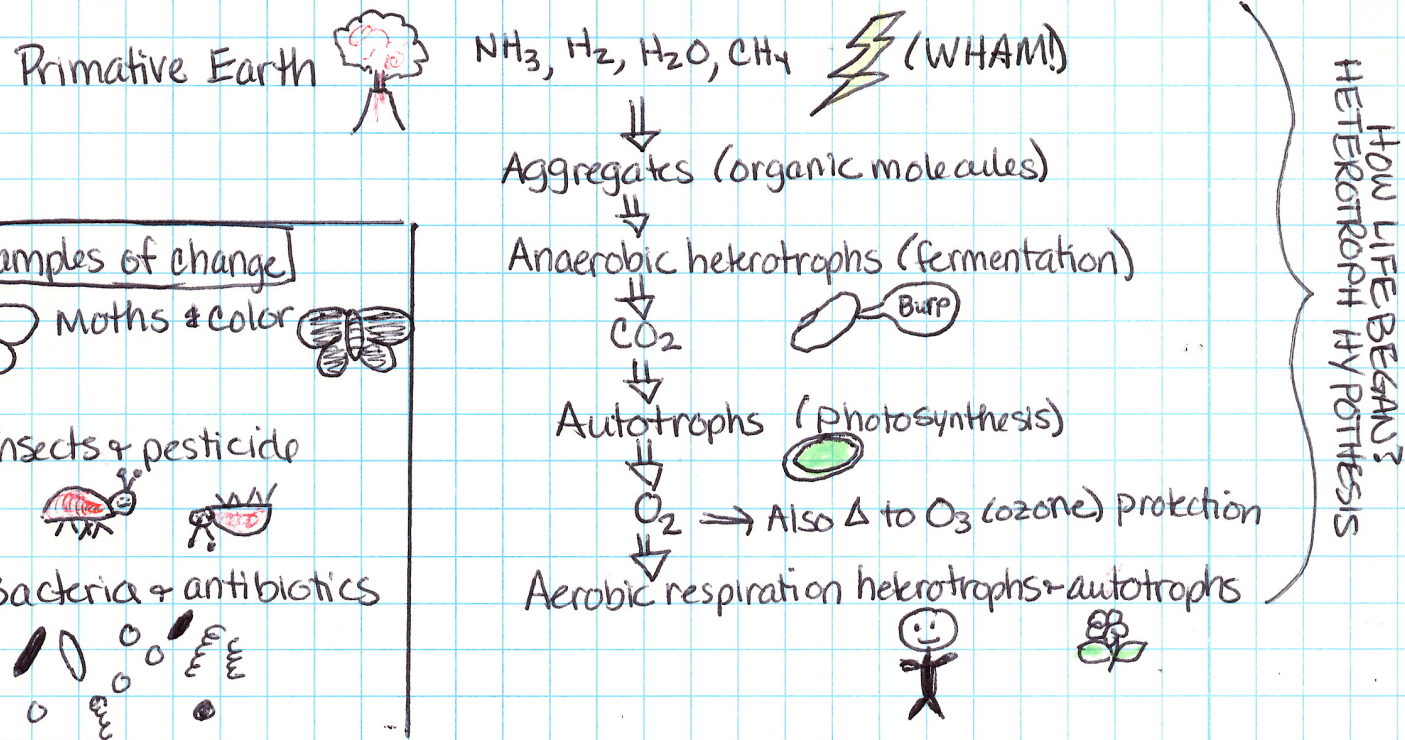 Primative Earth
NH3, H2, H2O, CH4 (WHAM!)
Aggregates (organic molecules)
Anaerobic heterotrophs (fermentation)
Burp
CO2
Autotrophs (photosynthesis)
O2 ⇒ Also Δ to O3 (ozone) protection
Aerobic respiration heterotrophs + autotrophs
HOW LIFE BEGAN?
HETEROTROPH HYPOTHESIS
amples of change
Moths & color
nsects & pesticide
Bacteria & antibiotics